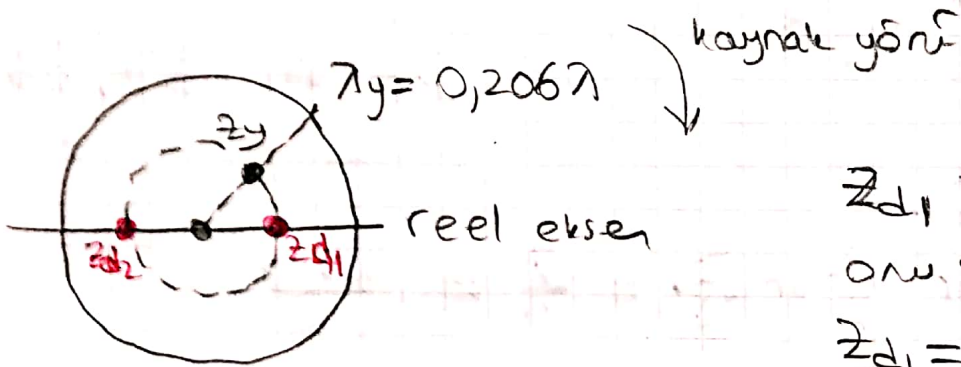 kaynak yönü
λy= 0,206λ
zy
zd2
zd1
reel eksen
Zd1
onu
Zd1 =